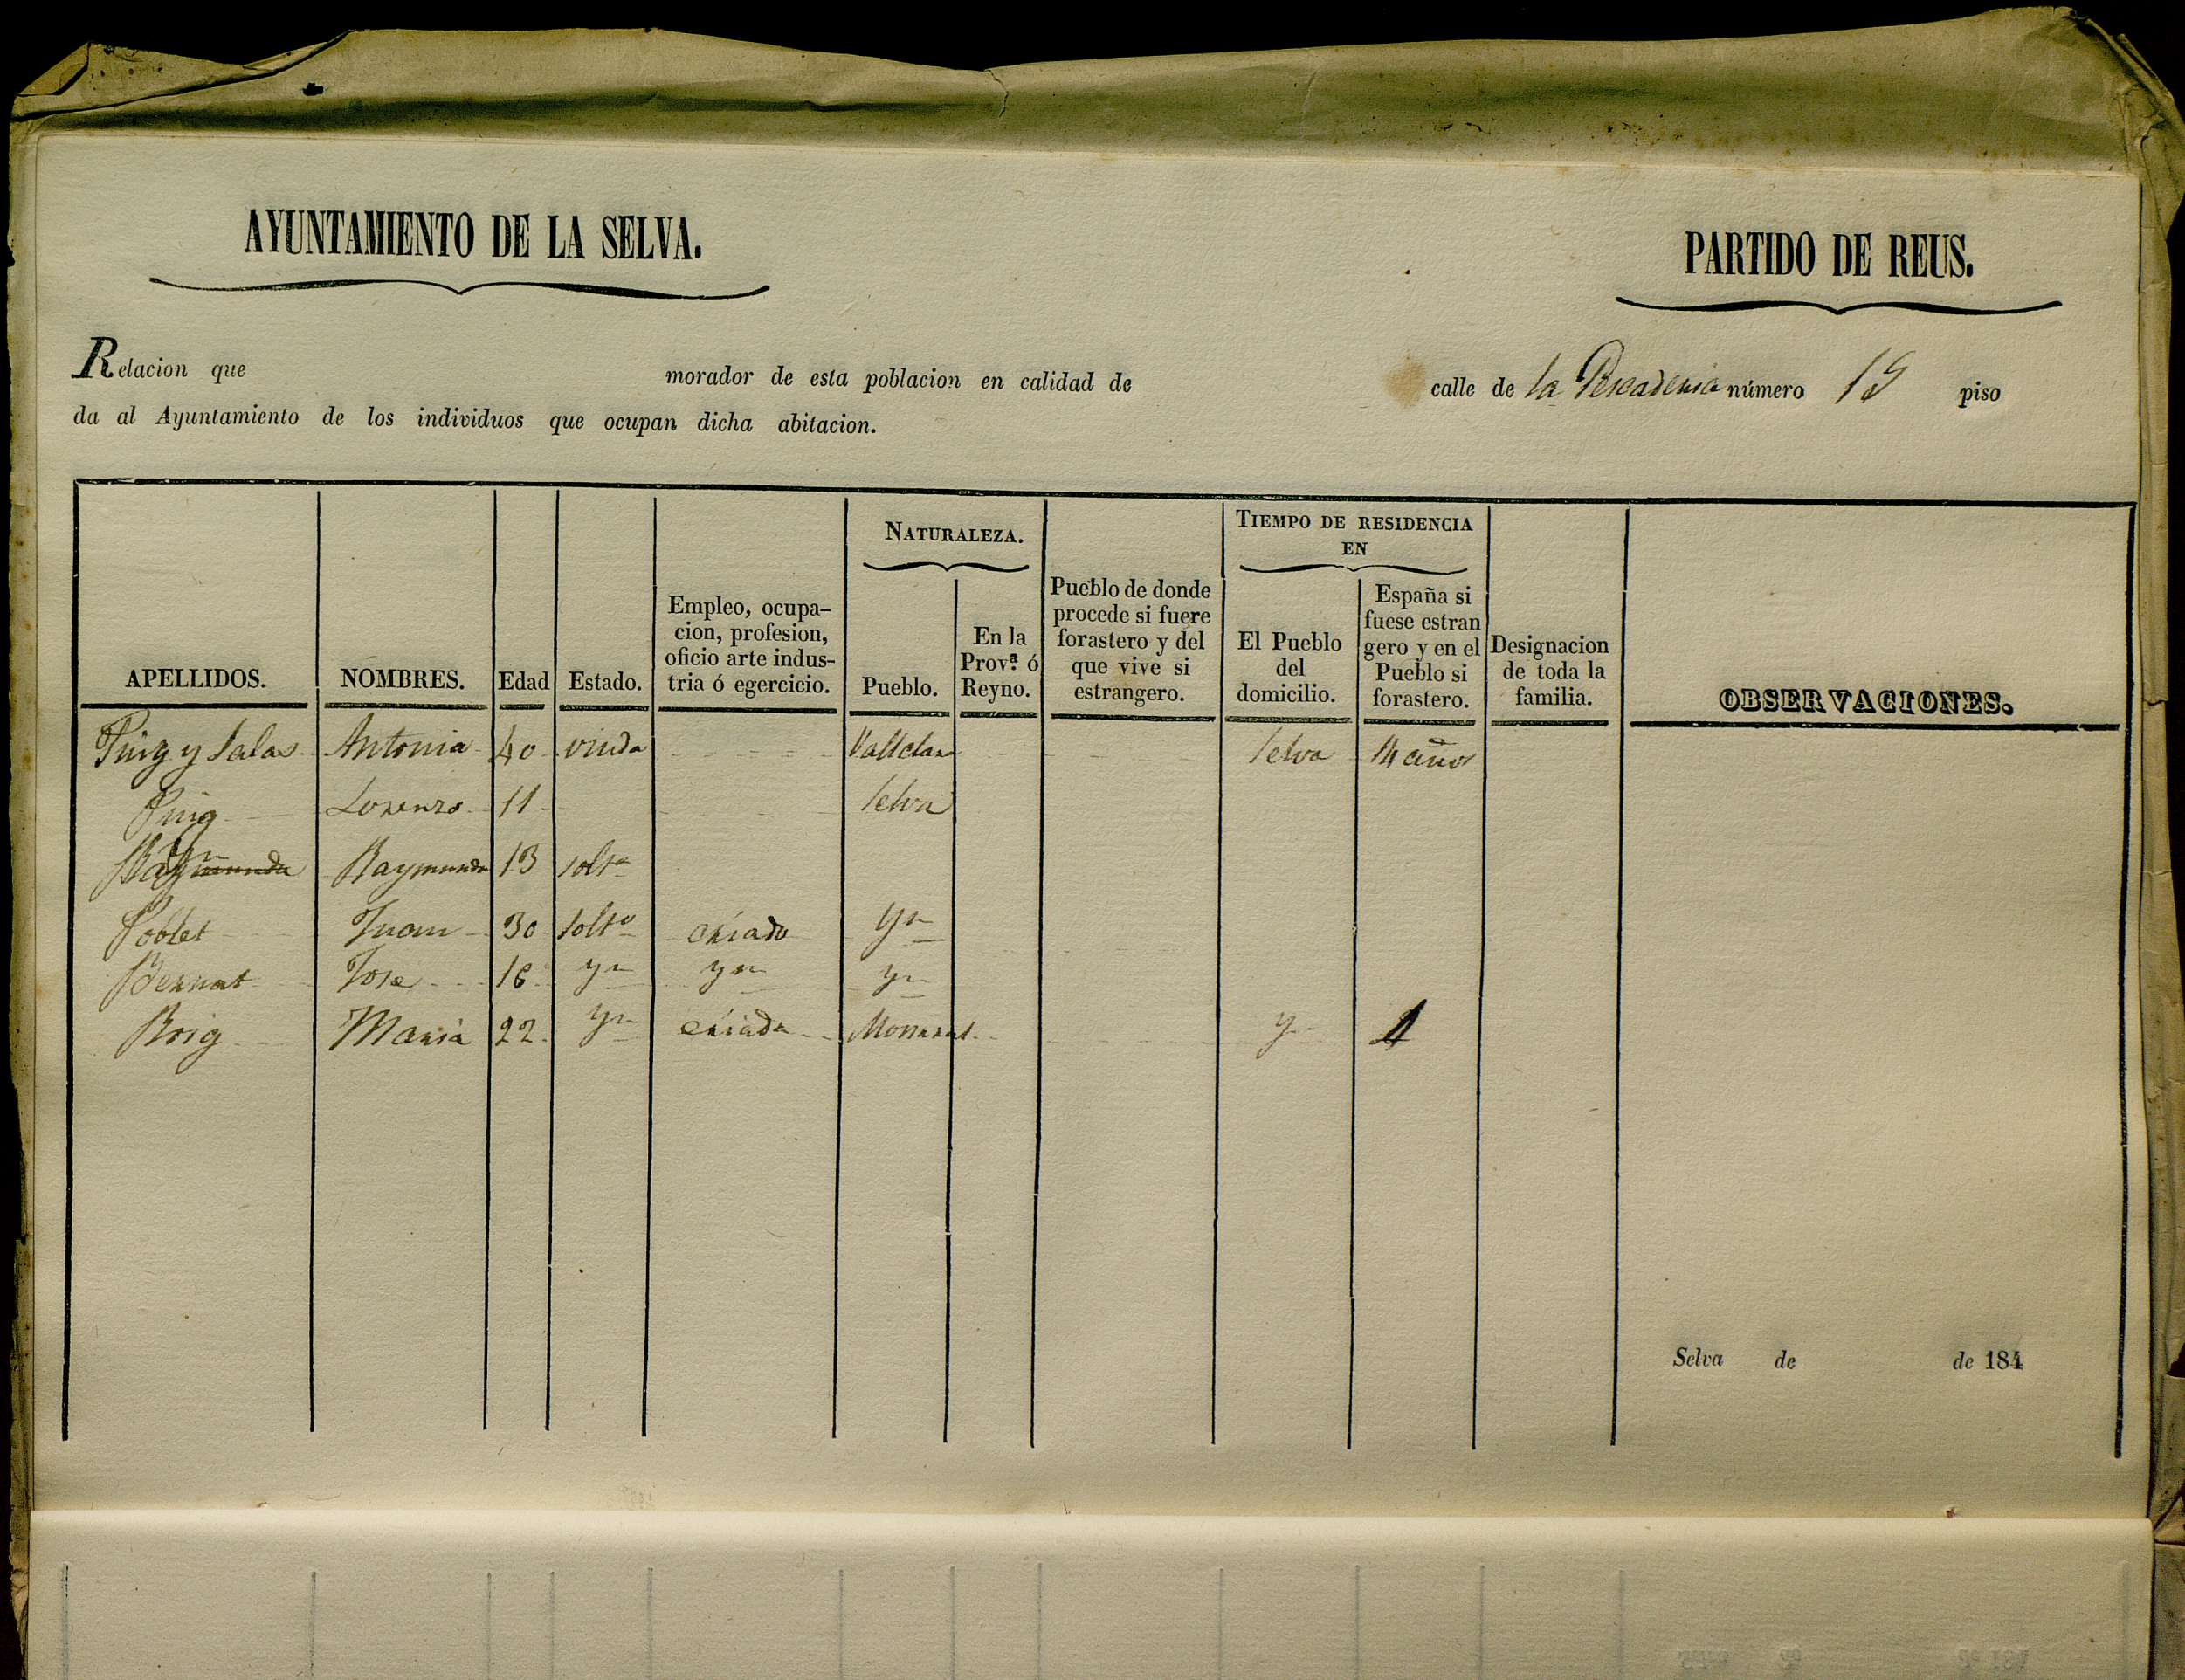 AYUNTAMIENTO DE LA SELVA.
PARTIDO DE REUS.
Relacion que morador de esta poblacion en calidad de calle de la Pescaderia número piso
da al Ayuntamiento de los individuos que ocupan dicha abitacion.
NATURALEZA.
TIEMPO DE RESIDENCIA
EN
APELLIDOS.
NOMBRES.
Edad
Estado.
Empleo, ocupa-
cion, profesion,
oficio arte indus-
tria ó egercicio.
Pueblo.
En la
Prov.ª ó
Reyno.
Pueblo de donde
procede si fuere
forastero y del
que vive si
estrangero.
El Pueblo
del
domicilio.
España si
fuese estran
gero y en el
Pueblo si
forastero.
Designacion
de toda la
familia.
OBSERVACIONES.
Puig y Salas Antonia 40 viuda Vallclara Selva 14 años
Puig Lorenzo 11 Selva
Raymunda Raymunda 13 solta
Poblet Juan 30 solto criado yn
Bernat Jose 16 yn yn yn
Roig Maria 22 yn criada Monnral y 1
Selva de de 184